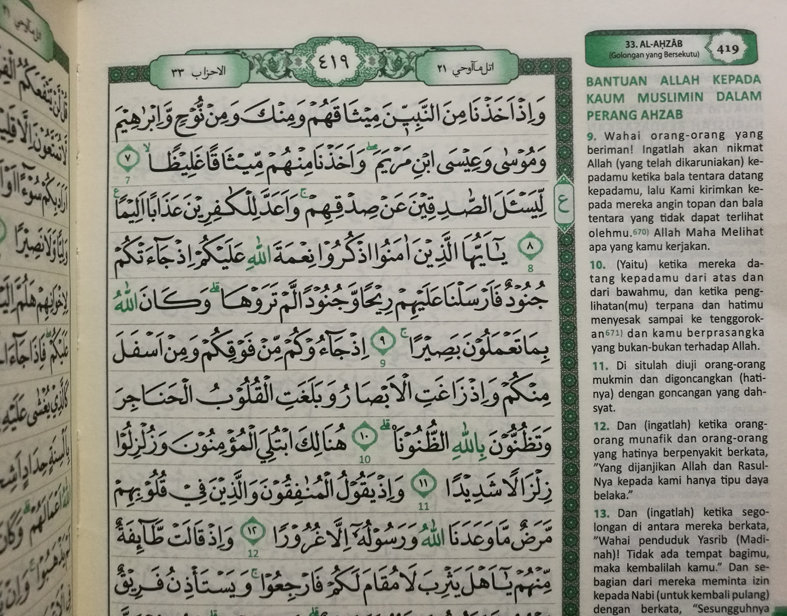 الاحزاب ٣٣
٤١٩
اتل ماۤاوحي ٢١
وَاِذْ اَخَذْنَا مِنَ النَّبِيّٖنَ مِيْثَاقَهُمْ وَمِنْكَ وَمِنْ نُّوْحٍ وَّاِبْرٰهِيْمَ
وَمُوْسٰى وَعِيْسَى ابْنِ مَرْيَمَ ۖوَاَخَذْنَا مِنْهُمْ مِّيْثَاقًا غَلِيْظًاۙ ٧
7
لِّيَسْـَٔلَ الصّٰدِقِيْنَ عَنْ صِدْقِهِمْ ۚوَاَعَدَّ لِلْكٰفِرِيْنَ عَذَابًا اَلِيْمًاࣖ
٨ يٰٓاَيُّهَا الَّذِيْنَ اٰمَنُوا اذْكُرُوْا نِعْمَةَ اللّٰهِ عَلَيْكُمْ اِذْ جَاۤءَتْكُمْ
8
جُنُوْدٌ فَاَرْسَلْنَا عَلَيْهِمْ رِيْحًا وَّجُنُوْدًا لَّمْ تَرَوْهَا ۗوَكَانَ اللّٰهُ
بِمَا تَعْمَلُوْنَ بَصِيْرًاۚ ٩ اِذْ جَاۤءُوْكُمْ مِّنْ فَوْقِكُمْ وَمِنْ اَسْفَلَ
9
مِنْكُمْ وَاِذْ زَاغَتِ الْاَبْصَارُ وَبَلَغَتِ الْقُلُوْبُ الْحَنَاجِرَ
وَتَظُنُّوْنَ بِاللّٰهِ الظُّنُوْنَا۠ ۗ ١٠ هُنَالِكَ ابْتُلِيَ الْمُؤْمِنُوْنَ وَزُلْزِلُوْا
10
زِلْزَالًا شَدِيْدًا ١١ وَاِذْ يَقُوْلُ الْمُنٰفِقُوْنَ وَالَّذِيْنَ فِيْ قُلُوْبِهِمْ
11
مَّرَضٌ مَّا وَعَدَنَا اللّٰهُ وَرَسُوْلُهٗٓ اِلَّا غُرُوْرًا ١٢ وَاِذْ قَالَتْ طَّاۤىِٕفَةٌ
12
مِّنْهُمْ يٰٓاَهْلَ يَثْرِبَ لَا مُقَامَ لَكُمْ فَارْجِعُوْا ۚوَيَسْتَأْذِنُ فَرِيْقٌ
ع
33. AL-AḤZĀB
(Golongan yang Bersekutu)
419
BANTUAN ALLAH KEPADA
KAUM MUSLIMIN DALAM
PERANG AHZAB
9. Wahai orang-orang yang
beriman! Ingatlah akan nikmat
Allah (yang telah dikaruniakan) ke-
padamu ketika bala tentara datang
kepadamu, lalu Kami kirimkan ke-
pada mereka angin topan dan bala
tentara yang tidak dapat terlihat
olehmu.670) Allah Maha Melihat
apa yang kamu kerjakan.
10. (Yaitu) ketika mereka da-
tang kepadamu dari atas dan
dari bawahmu, dan ketika peng-
lihatan(mu) terpana dan hatimu
menyesak sampai ke tenggorok-
an671) dan kamu berprasangka
yang bukan-bukan terhadap Allah.
11. Di situlah diuji orang-orang
mukmin dan digoncangkan (hati-
nya) dengan goncangan yang dah-
syat.
12. Dan (ingatlah) ketika orang-
orang munafik dan orang-orang
yang hatinya berpenyakit berkata,
"Yang dijanjikan Allah dan Rasul-
Nya kepada kami hanya tipu daya
belaka."
13. Dan (ingatlah) ketika sego-
longan di antara mereka berkata,
"Wahai penduduk Yasrib (Madi-
nah)! Tidak ada tempat bagimu,
maka kembalilah kamu." Dan se-
bagian dari mereka meminta izin
kepada Nabi (untuk kembali pulang)
dengan berkata, "Sesungguhnya